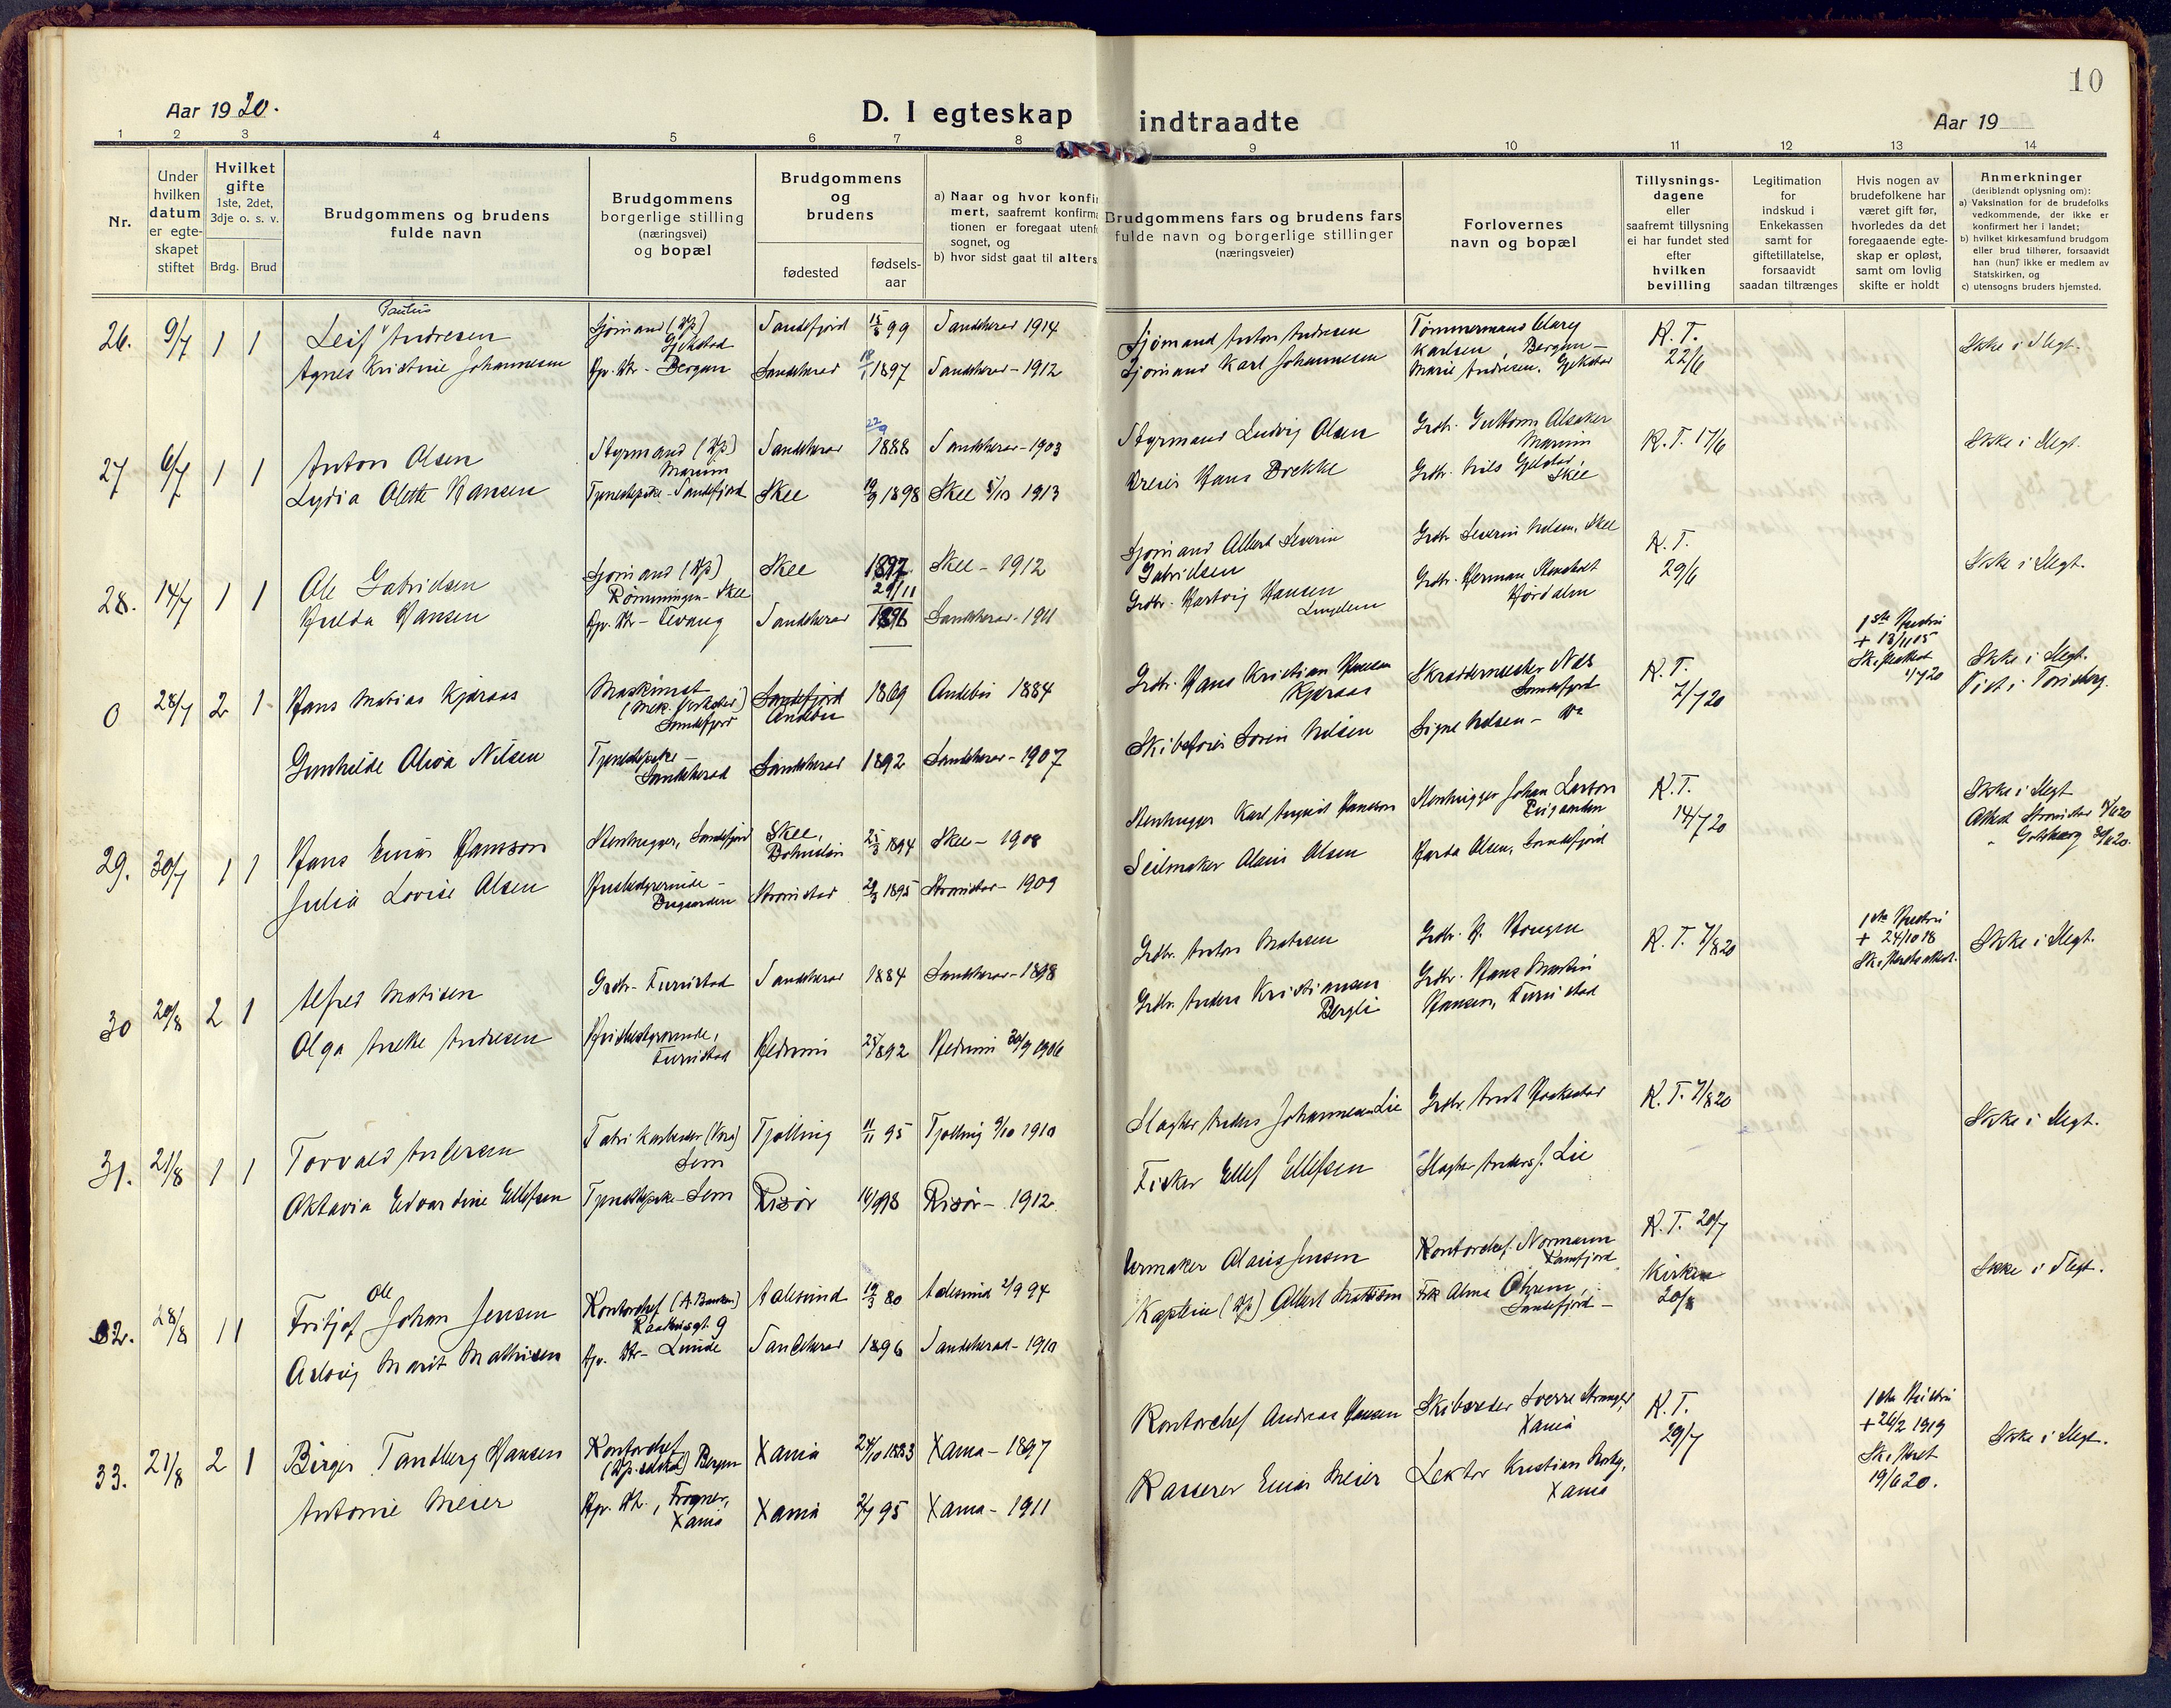 10
Aar 1920.
D. I egteskap indtraadte
Aar 19
1 2 3 4 5 6 7 8 9 10 11 12 13 14
Nr.
Under
hvilken
datum
er egte-
skapet
stiftet
Hvilket
gifte
1ste, 2det,
3dje o. s. v.
Brdg. Brud
Brudgommens og brudens
fulde navn
Brudgommens
borgerlige stilling
(næringsvei)
og bopæl
Brudgommens
og
brudens
fødested
fødsels-
aar
a) Naar og hvor konfir
mert, saafremt konfirma
tionen er foregaat utenf
sognet, og
b) hvor sidst gaat til alters
Brudgommens fars og brudens fars
fulde navn og borgerlige stillinger
(næringsveier)
Forlovernes
navn og bopæl
Tillysnings-
dagene
eller
saafremt tillysning
ei har fundet sted
efter
hvilken
bevilling
Legitimation
for
indskud i
Enkekassen
samt for
giftetillatelse,
forsaavidt
saadan tiltrænges
Hvis nogen av
brudefolkene har
været gift før,
hvorledes da det
foregaaende egte-
skap er opløst,
samt om lovlig
skifte er holdt
Anmerkninger
(deriblandt oplysning om):
a) Vaksination for de brudefolks
vedkommende, der ikke er
konfirmert her i landet;
b) hvilket kirkesamfund brudgom
eller brud tilhører, forsaavidt
han (hun) ikke er medlem av
Statskirken, og
c) utensogns bruders hjemsted.
26. 9/7 1 1
Paulus
Leif Andresen
Sjømand (Hp)
Gjekstad
Sandefjord 15/8 99 Sandeherad 1914
Sjømand Anton Andresen
Tømmermand
Karlsen, Bergan -
R. T.
22/6
Ikke i Slegt.
Agnes Kristine Johannesen
Hp. Dtr - Bergan Sandeherad 1897 Sandeherad - 1912
Sjømand Karl Johannesen
Marie Andresen, Gjekstad
27 6/7 1 1
Anton Olsen
Styrmand (Hp)
Marum
Sandeherad 22/9 1888 Sandeherad - 1903
Styrmand Ludvig Olsen
Grdbr. Guttorm Olsaker
Marum
R. T. 17/6
Ikke i Slegt.
Lydia Olette Hansen
Tjenestepike - Sandefjord Skee 19/9 1898 Skee 5/10 1913
Hans Brekke
Grdbr. Nils Gjelstad,
Skee
28. 14/7 1 1
Ole Gabrielsen
Sjømand (Hp)
Rømmingen - Skee
Skee 1897 Skee - 1912
Sjømand Albert Severin
Gabrielsen
Grdbr. Severin Nilsen, Skee
R. T.
29/6
Ikke i Slegt.
Hulda Hansen
Hp. Dtr - Tevang
Sandeherad 21/11 1896 Sandeherad - 1911
Grdbr. Hartvig Hansen
Lingelem
Grdbr. Herman Stensholt
Hjørdalen
0 28/7 2 1
Hans Matias Kjæraas
Maskinist
(Mek. Verksted)
Sandefjord
Sandefjord
Andebu
1869 Andebu 1884
Grdbr. Hans Kristian Hansen
Kjæraas
Skræddermester Næs
Sandefjord
R. T.
7/7 20
1ste Hustru
+ 13/11 05
Sk. attest
1/7 20
Ikke i Slegt.
Viet i Tønsberg.
Gunhilde Olivia Nilsen
Tjenestepike -
Sandeherad
Sandeherad 1892 Sandeherad - 1907
Skibsfører Søren Nilsen
Signe Nilsen - Do
29. 30/7 1 1
Hans Einar Hansson
Stenhugger, Sandefjord
Skee,
Bohuslän
25/3 1894 Skee - 1908
Stenhugger Karl August Hansson
Stenhugger Johan Larson
R. T.
14/7 20
Ikke i Slegt
Attest Strømstad
Göteborg
Julia Lovise Olsen
Husbestyrerinde -
Strømstad 1895 Strømstad - 1909
Seilmaker Olaus Olsen
Harda Olsen, Sandefjord
30 20/8 2 1
Alfred Matisen
Grdbr. - Furustad Sandeherad 1884 Sandeherad - 1898
Grdbr. Anton Matisen
Grdbr. H. Haugen
R. T. 7/8 20
1ste Hustru
+ 24/10 18
Ikke i Slegt.
Olga Andresen
Husbestyrerinde,
Furustad
Hedrum 1892 Hedrum 30/9 1906
Grdbr. Anders Kristiansen
Bergli
Grdbr. Hans Martin
Hansen, Furustad
31. 21/8 1 1
Torvald Andersen
Fabrikarbeider
Sem
Tjølling 11/11 95 Tjølling 9/10 1910
Slagter Anders Johannesen Lie
Grdbr. Arnt Haakestad
R. T. 7/8 20
Ikke i Slegt.
Oktavia Edvardine Ellefsen
Tjenestepike - Sem Risør 98 Risør - 1912
Fisker Ellef Ellefsen
Slagter Anders J. Lie
32. 28/8 1 1
Ole
Fritjof Johan Jensen
Kontorchef
9
Aalesund 19/3 80 Aalesund 2/9 94
Urmaker Olaus Jensen
Kontorchef Normann
Sandefjord
R. T. 20/7
Kirken
20/8
Ikke i Slegt.
Aslaug Marit Mathisen
Hp. Dtr - Lunde Sandeherad 1896 Sandeherad - 1910
Kaptein (Hp) Albert Mathisen
Frk Alma
Sandefjord -
33. 21/8 2 1
Birger Tandberg Hansen
Kontorchef
Bergen
Xania 24/10 1883 Xania - 1897
Kontorchef Andreas Hansen
Skibsreder Sverre
Xania
R. T.
29/7
1ste Hustru
+ 26/2 1919
Sk. Skifteret
19/6 20.
Ikke i Slegt.
Antonie Meier
Hp. Dtr., Frogner,
Xania
Xania 2/7 95 Xania - 1911
Kasserer Einar Meier
Lektor Kristian
Xania